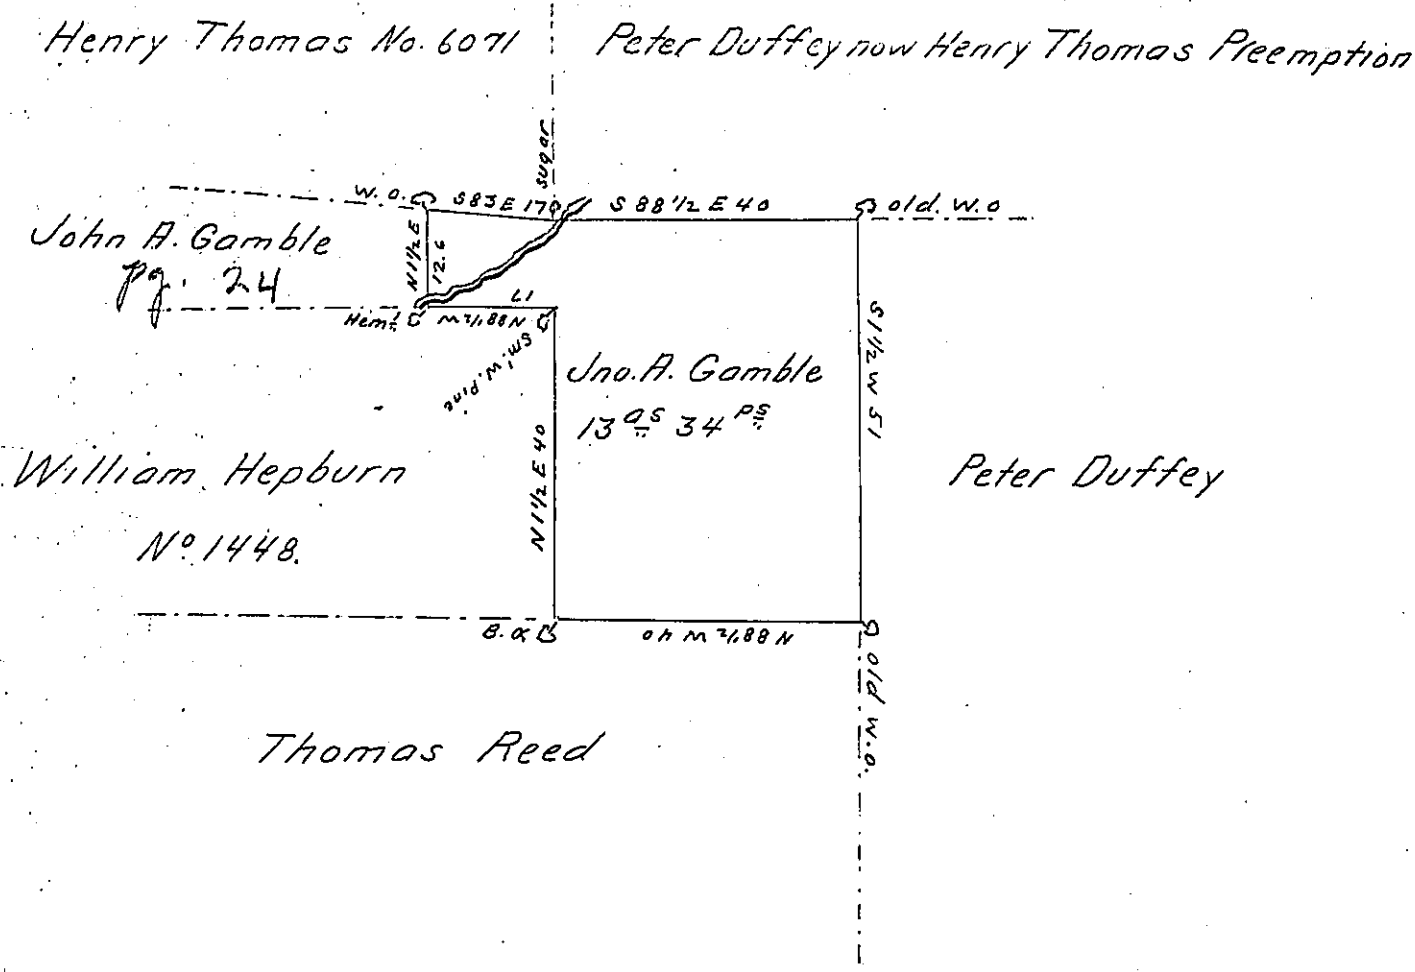 Henry Thomas No. 6071
Peter Duffey now Henry Thomas Preemption
Sugar
W. O.
S 83 E 170
S 88 1/2 E 40
old. W. O
John A. Gamble
pg. 24
N 1 1/2 E
12.6
Hem:
N 88 1/2 W
17
Sm. W. Pine
Jno. A. Gamble
13 as 34 ps
S 1 1/2 W 51
N 1 1/2 E 40
William Hepburn
No. 1448.
Peter Duffey
N 88 1/2 W 40
old W. O.
Thomas Reed